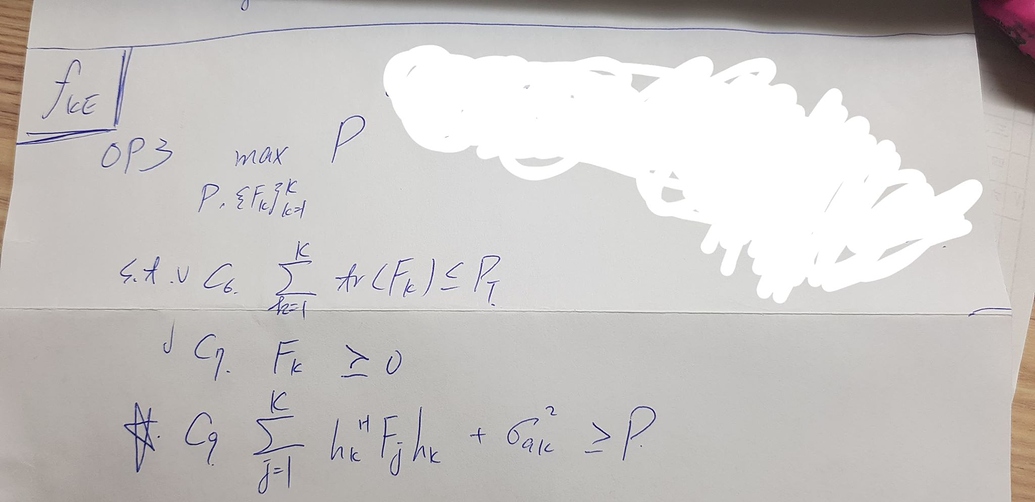 f_{KE}
OP3 max P
P, {F_k}_{k=1}^K
s.t. ∨ C_6. \sum_{k=1}^{K} tr(F_k) ≤ P_T.
∨ C_7. F_k ≽ 0
☆. C_9 \sum_{j=1}^{K} h_k^H F_j h_k + σ_{ak}^2 ≥ P.